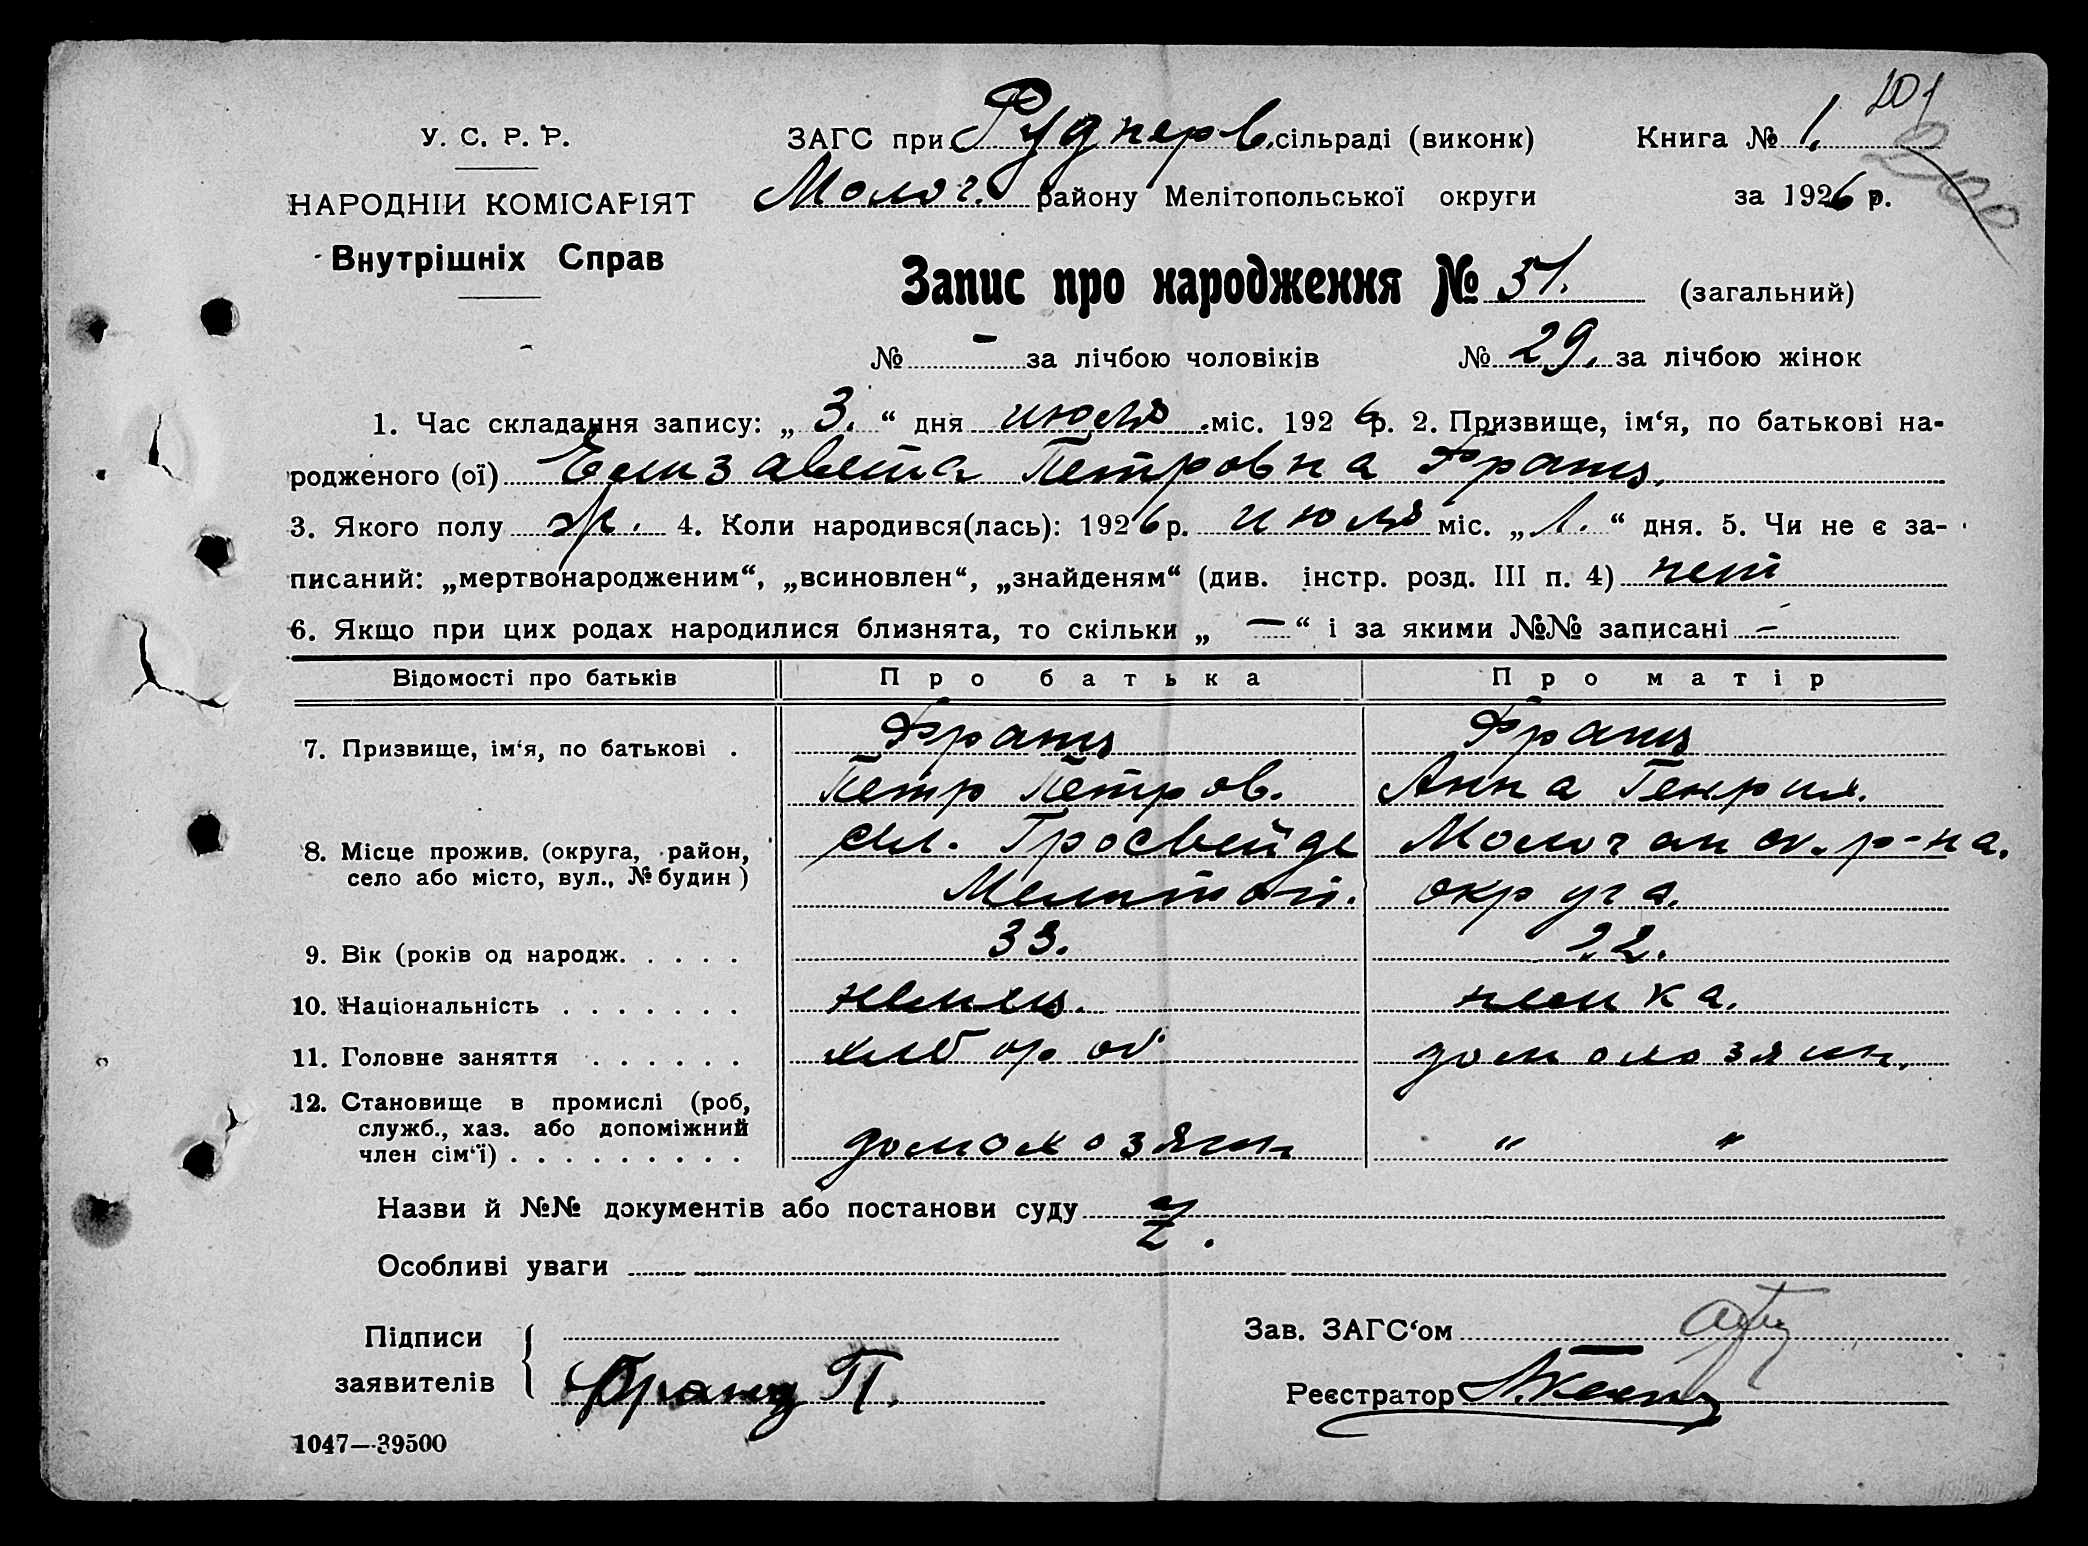 101
У. С. Р. Р.
ЗАГС при Руднерв. сільраді (виконк)
Книга № 1.
НАРОДНІЙ КОМІСАРІЯТ
Молоч. району Мелітопольської округи
за 1926 р.
Внутрішніх Справ
Запис про народження № 51. (загальний)
№ – за лічбою чоловіків № 29. за лічбою жінок
1. Час складання запису: „ 3. “ дня июля міс. 1926 р. 2. Призвище, ім‘я, по батькові на-
родженого (ої) Елизавета Петровна Франц.
3. Якого полу ж. 4. Коли народився(лась): 1926 р. июля міс. „ 1. “ дня. 5. Чи не є за-
писаний: „мертвонародженим“, „всиновлен“, „знайденям“ (див. інстр. розд. III п. 4) нет
6. Якщо при цих родах народилися близнята, то скільки „ — “ і за якими №№ записані —
Відомості про батьків Про батька Про матір
7. Призвище, ім‘я, по батькові . Франц Франц
Петр Петров. Анна Генрих.
8. Місце прожив. (округа, район, Гросвейде Молочанск. р-на.
село або місто, вул., № будин ) Мелитоп. округа.
9. Вік (років од народж. . . . . 33. 22.
10. Національність . . . . . . . немец. немка.
11. Головне заняття . . . . . . хлебороб домохозяин.
12. Становище в промислі (роб,
служб., хаз. або допоміжний
член сім‘ї) . . . . . . . . . домохозяин “ “
Назви й №№ документів або постанови суду
Особливі уваги
Підписи
Зав. ЗАГС‘ом
заявителів Франц П.
Реєстратор
1047—39500